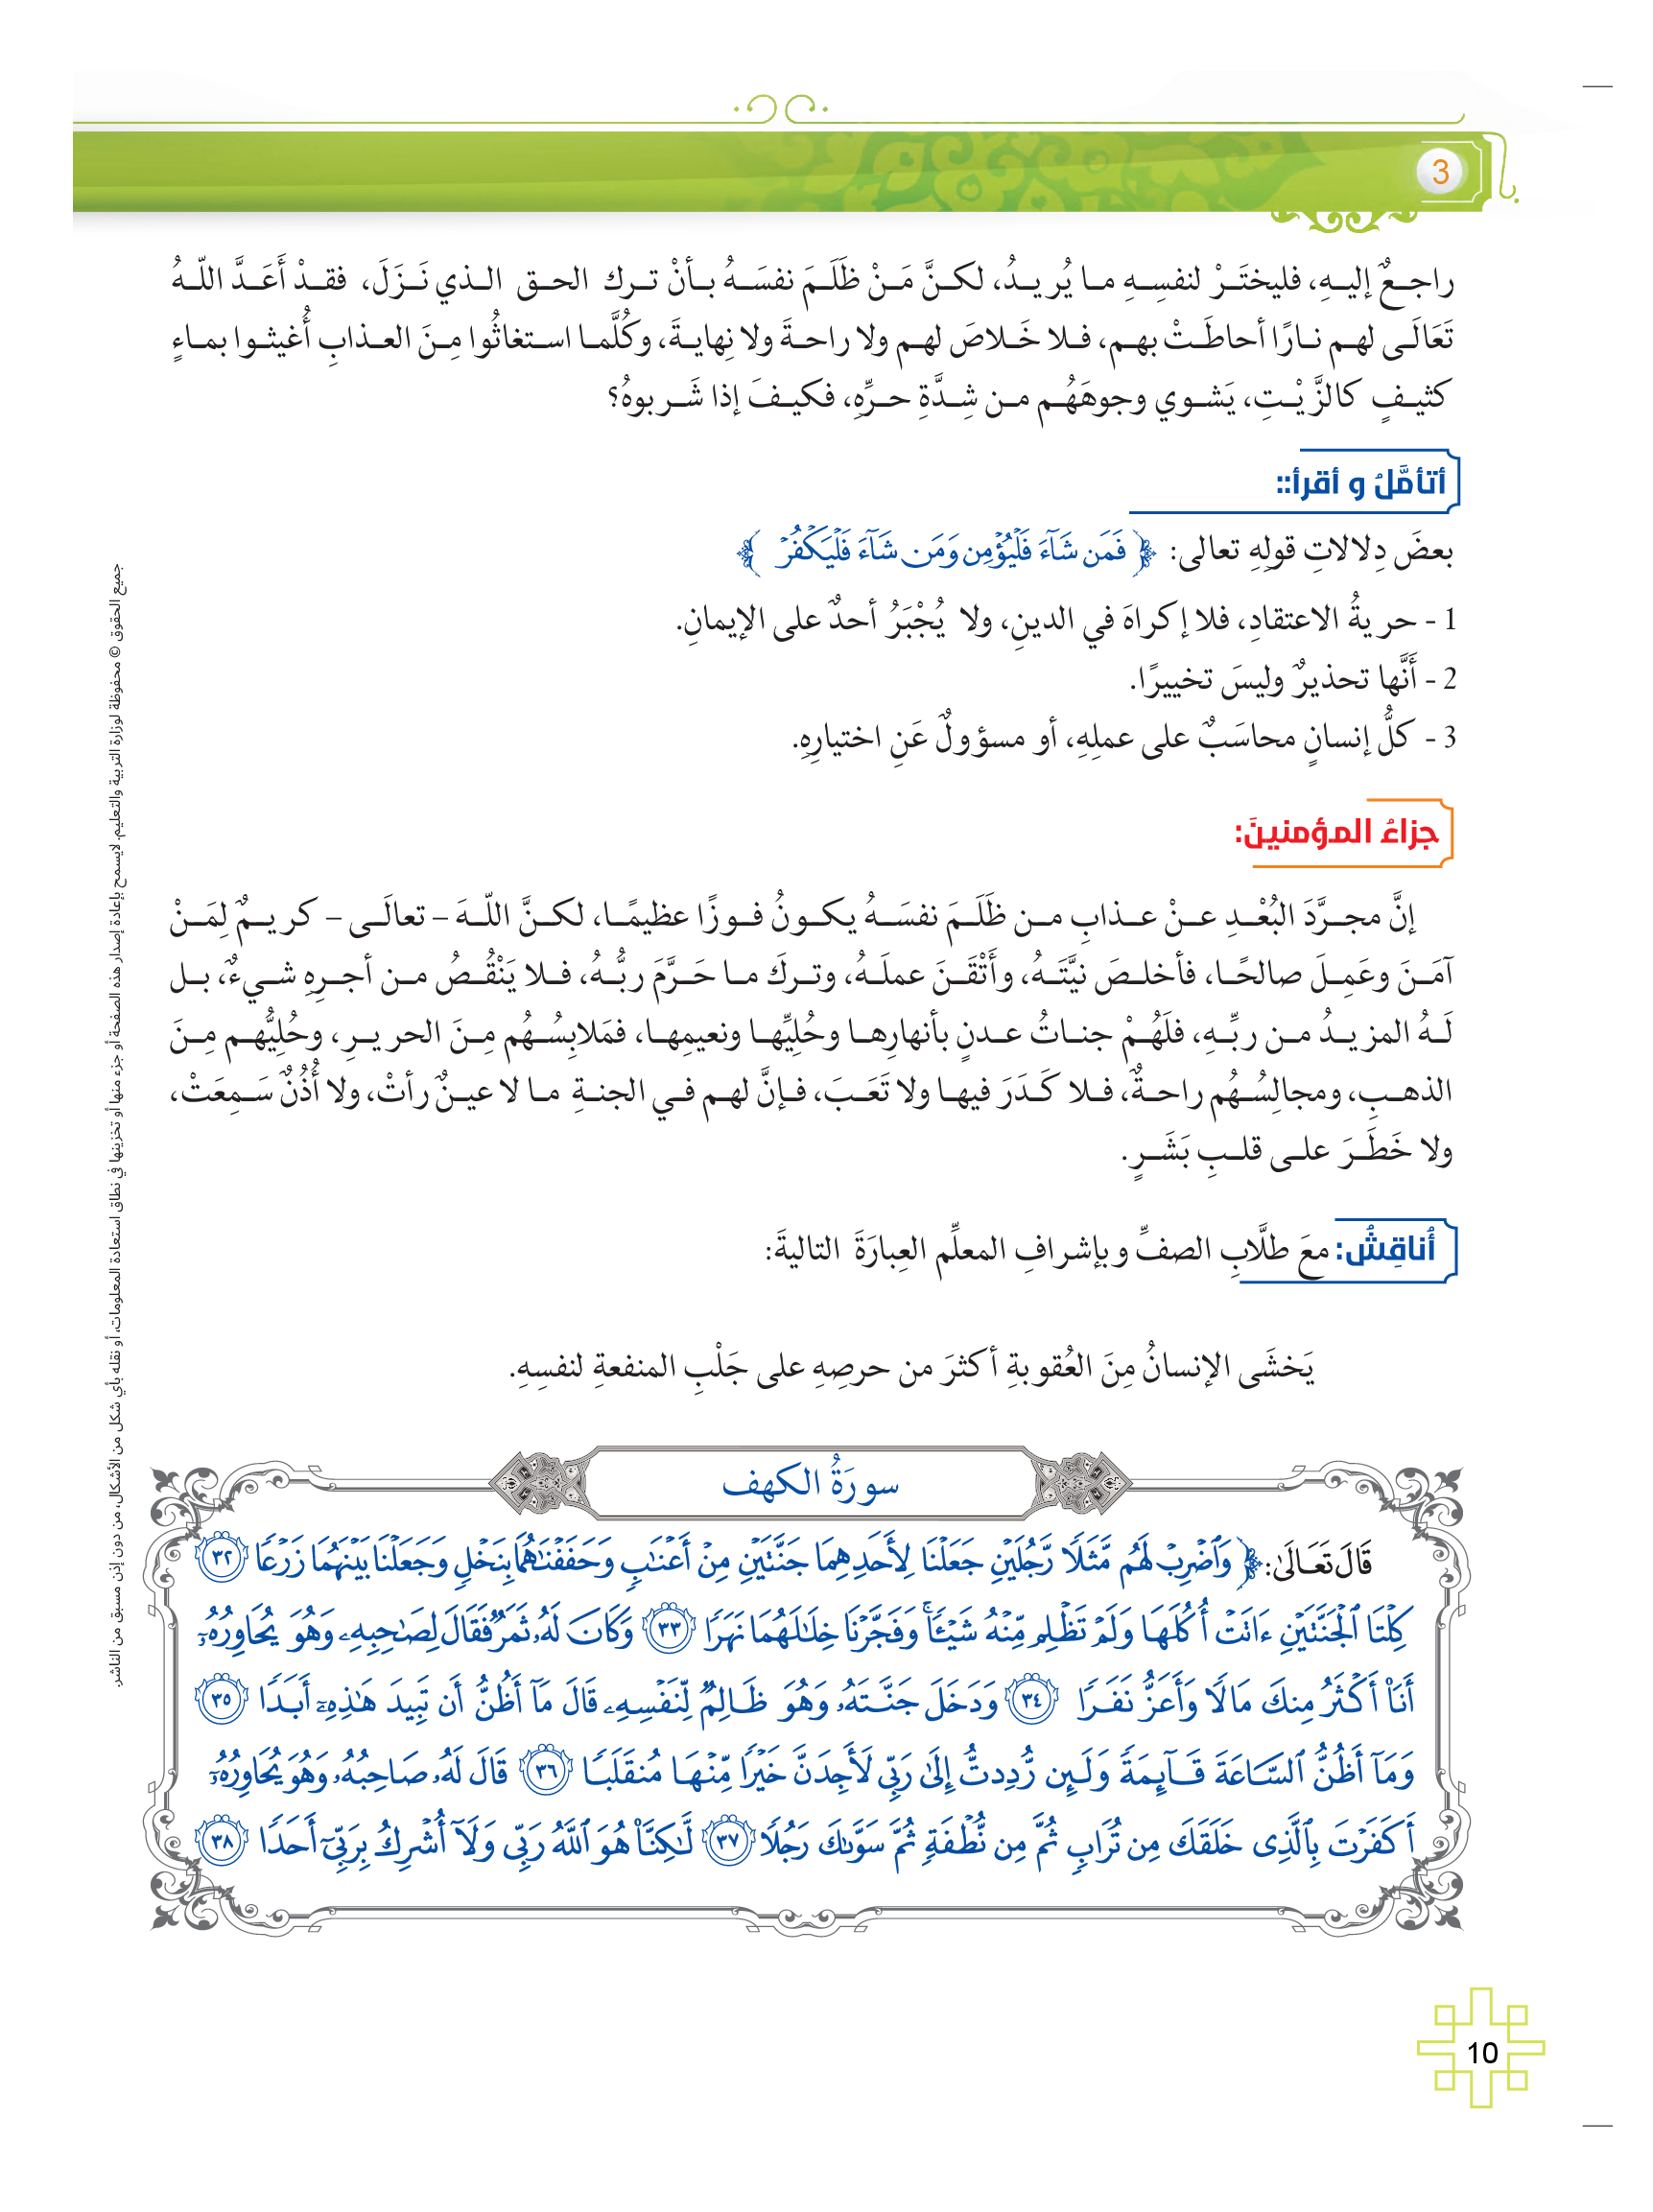 3
راجعٌ إليهِ، فليختَرْ لنفسِهِ ما يُريدُ، لكنَّ مَنْ ظَلَمَ نفسَهُ بأنْ ترك الحق الذي نَزَلَ، فقدْ أَعَدَّ اللّهُ
تَعَالَى لهم نارًا أحاطَتْ بهم، فلا خَلاصَ لهم ولا راحةَ ولا نِهايةَ، وكُلَّما استغاثُوا مِنَ العذابِ أُغيثوا بماءٍ
كثيفٍ كالزَّيْتِ، يَشوي وجوهَهُم من شِدَّةِ حرِّهِ، فكيفَ إذا شَربوهُ؟
أتأمَّلُ و أقرأ::
بعضَ دِلالاتِ قولِهِ تعالى: ﴿ فَمَن شَآءَ فَلْيُؤْمِن وَمَن شَآءَ فَلْيَكْفُرْ ﴾
1 - حريةُ الاعتقادِ، فلا إكراهَ في الدينِ، ولا يُجْبَرُ أحدٌ على الإيمانِ.
2 - أنَّها تحذيرٌ وليسَ تخييرًا.
3 - كلُّ إنسانٍ محاسَبٌ على عملِهِ، أو مسؤولٌ عَنِ اختيارِهِ.
جزاءُ المؤمنينَ:
إنَّ مجرَّدَ البُعْدِ عنْ عذابِ من ظَلَمَ نفسَهُ يكونُ فوزًا عظيمًا، لكنَّ اللّهَ – تعالَى – كريمٌ لِمَنْ
آمَنَ وعَمِلَ صالحًا، فأخلصَ نيَّتَهُ، وأَتْقَنَ عملَهُ، وتركَ ما حَرَّمَ ربُّهُ، فلا يَنْقُصُ من أجرِهِ شيءٌ، بل
لَهُ المزيدُ من ربِّهِ، فلَهُمْ جناتُ عدنٍ بأنهارِها وحُلِيِّها ونعيمِها، فمَلابِسُهُم مِنَ الحريرِ، وحُلِيُّهم مِنَ
الذهبِ، ومجالِسُهُم راحةٌ، فلا كَدَرَ فيها ولا تَعَبَ، فإنَّ لهم في الجنةِ ما لا عينٌ رأتْ، ولا أُذُنٌ سَمِعَتْ،
ولا خَطَرَ على قلبِ بَشَرٍ.
أُناقِشُ: معَ طلَّابِ الصفِّ وبإشرافِ المعلِّم العِبارَةَ التاليةَ:
يَخشَى الإنسانُ مِنَ العُقوبةِ أكثرَ من حرصِهِ على جَلْبِ المنفعةِ لنفسِهِ.
سورَةُ الكهف
قَالَ تَعَالَىٰ: ﴿ وَٱضْرِبْ لَهُم مَّثَلًا رَّجُلَيْنِ جَعَلْنَا لِأَحَدِهِمَا جَنَّتَيْنِ مِنْ أَعْنَٰبٍ وَحَفَفْنَٰهُمَا بِنَخْلٍ وَجَعَلْنَا بَيْنَهُمَا زَرْعًا ٣٢
كِلْتَا ٱلْجَنَّتَيْنِ ءَاتَتْ أُكُلَهَا وَلَمْ تَظْلِم مِّنْهُ شَيْـًٔا ۚ وَفَجَّرْنَا خِلَٰلَهُمَا نَهَرًا ٣٣ وَكَانَ لَهُۥ ثَمَرٌ فَقَالَ لِصَٰحِبِهِۦ وَهُوَ يُحَاوِرُهُۥٓ
أَنَا۠ أَكْثَرُ مِنكَ مَالًا وَأَعَزُّ نَفَرًا ٣٤ وَدَخَلَ جَنَّتَهُۥ وَهُوَ ظَالِمٌ لِّنَفْسِهِۦ قَالَ مَآ أَظُنُّ أَن تَبِيدَ هَٰذِهِۦٓ أَبَدًا ٣٥
وَمَآ أَظُنُّ ٱلسَّاعَةَ قَآئِمَةً وَلَئِن رُّدِدتُّ إِلَىٰ رَبِّى لَأَجِدَنَّ خَيْرًا مِّنْهَا مُنقَلَبًا ٣٦ قَالَ لَهُۥ صَاحِبُهُۥ وَهُوَ يُحَاوِرُهُۥٓ
أَكَفَرْتَ بِٱلَّذِى خَلَقَكَ مِن تُرَابٍ ثُمَّ مِن نُّطْفَةٍ ثُمَّ سَوَّىٰكَ رَجُلًا ٣٧ لَّٰكِنَّا۠ هُوَ ٱللَّهُ رَبِّى وَلَآ أُشْرِكُ بِرَبِّىٓ أَحَدًا ٣٨
10
جميع الحقوق © محفوظة لوزارة التربية والتعليم. لايسمح بإعادة إصدار هذه الصفحة أو جزء منها أو تخزينها في نطاق استعادة المعلومات، أو نقله بأي شكل من الأشكال، من دون إذن مسبق من الناشر.